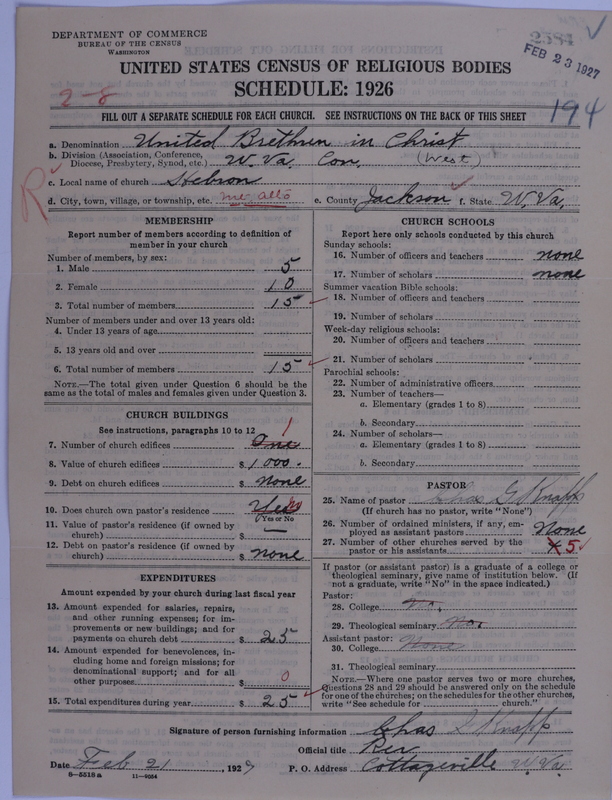 DEPARTMENT OF COMMERCE
BUREAU OF THE CENSUS
WASHINGTON
2584
FEB 23 1927
UNITED STATES CENSUS OF RELIGIOUS BODIES
SCHEDULE: 1926
2-8
194
FILL OUT A SEPARATE SCHEDULE FOR EACH CHURCH. SEE INSTRUCTIONS ON THE BACK OF THIS SHEET
a. Denomination United Brethren in Christ
b. Division (Association, Conference, Diocese, Presbytery, Synod, etc.) W. Va. Con. (West)
R
c. Local name of church Hebron
d. City, town, village, or township, etc. Mt. Alto e. County Jackson f. State W. Va.
MEMBERSHIP
Report number of members according to definition of
member in your church
Number of members, by sex:
1. Male 5
2. Female 10
3. Total number of members 15
Number of members under and over 13 years old:
4. Under 13 years of age
5. 13 years old and over
6. Total number of members 15
NOTE.—The total given under Question 6 should be the
same as the total of males and females given under Question 3.
CHURCH BUILDINGS
See instructions, paragraphs 10 to 12
7. Number of church edifices One 1
8. Value of church edifices $ 1000.
9. Debt on church edifices $ none
10. Does church own pastor's residence Yes no
Yes or No
11. Value of pastor's residence (if owned by
church) $
12. Debt on pastor's residence (if owned by
church) $ none
EXPENDITURES
Amount expended by your church during last fiscal year
13. Amount expended for salaries, repairs,
and other running expenses; for im-
provements or new buildings; and for
payments on church debt $ 25
14. Amount expended for benevolences, in-
cluding home and foreign missions; for
denominational support; and for all
other purposes $ 0
15. Total expenditures during year $ 25
CHURCH SCHOOLS
Report here only schools conducted by this church
Sunday schools:
16. Number of officers and teachers none
17. Number of scholars none
Summer vacation Bible schools:
18. Number of officers and teachers
19. Number of scholars
Week-day religious schools:
20. Number of officers and teachers
21. Number of scholars
Parochial schools:
22. Number of administrative officers
23. Number of teachers—
a. Elementary (grades 1 to 8)
b. Secondary
24. Number of scholars—
a. Elementary (grades 1 to 8)
b. Secondary
PASTOR
25. Name of pastor Chas G. Knapp
(If church has no pastor, write "None")
26. Number of ordained ministers, if any, em-
ployed as assistant pastors None
27. Number of other churches served by the
pastor or his assistants 5
If pastor (or assistant pastor) is a graduate of a college or
theological seminary, give name of institution below. (If
not a graduate, write "No" in the space indicated.)
Pastor:
28. College No.
29. Theological seminary No.
Assistant pastor:
30. College None
31. Theological seminary
NOTE.—Where one pastor serves two or more churches,
Questions 28 and 29 should be answered only on the schedule
for one of the churches; on the schedules for the other churches,
write "See schedule for church."
Signature of person furnishing information Chas G Knapp
Official title Rev
Date Feb 21, 1927 P. O. Address Cottageville W. Va.
8—5518 a 11—9054